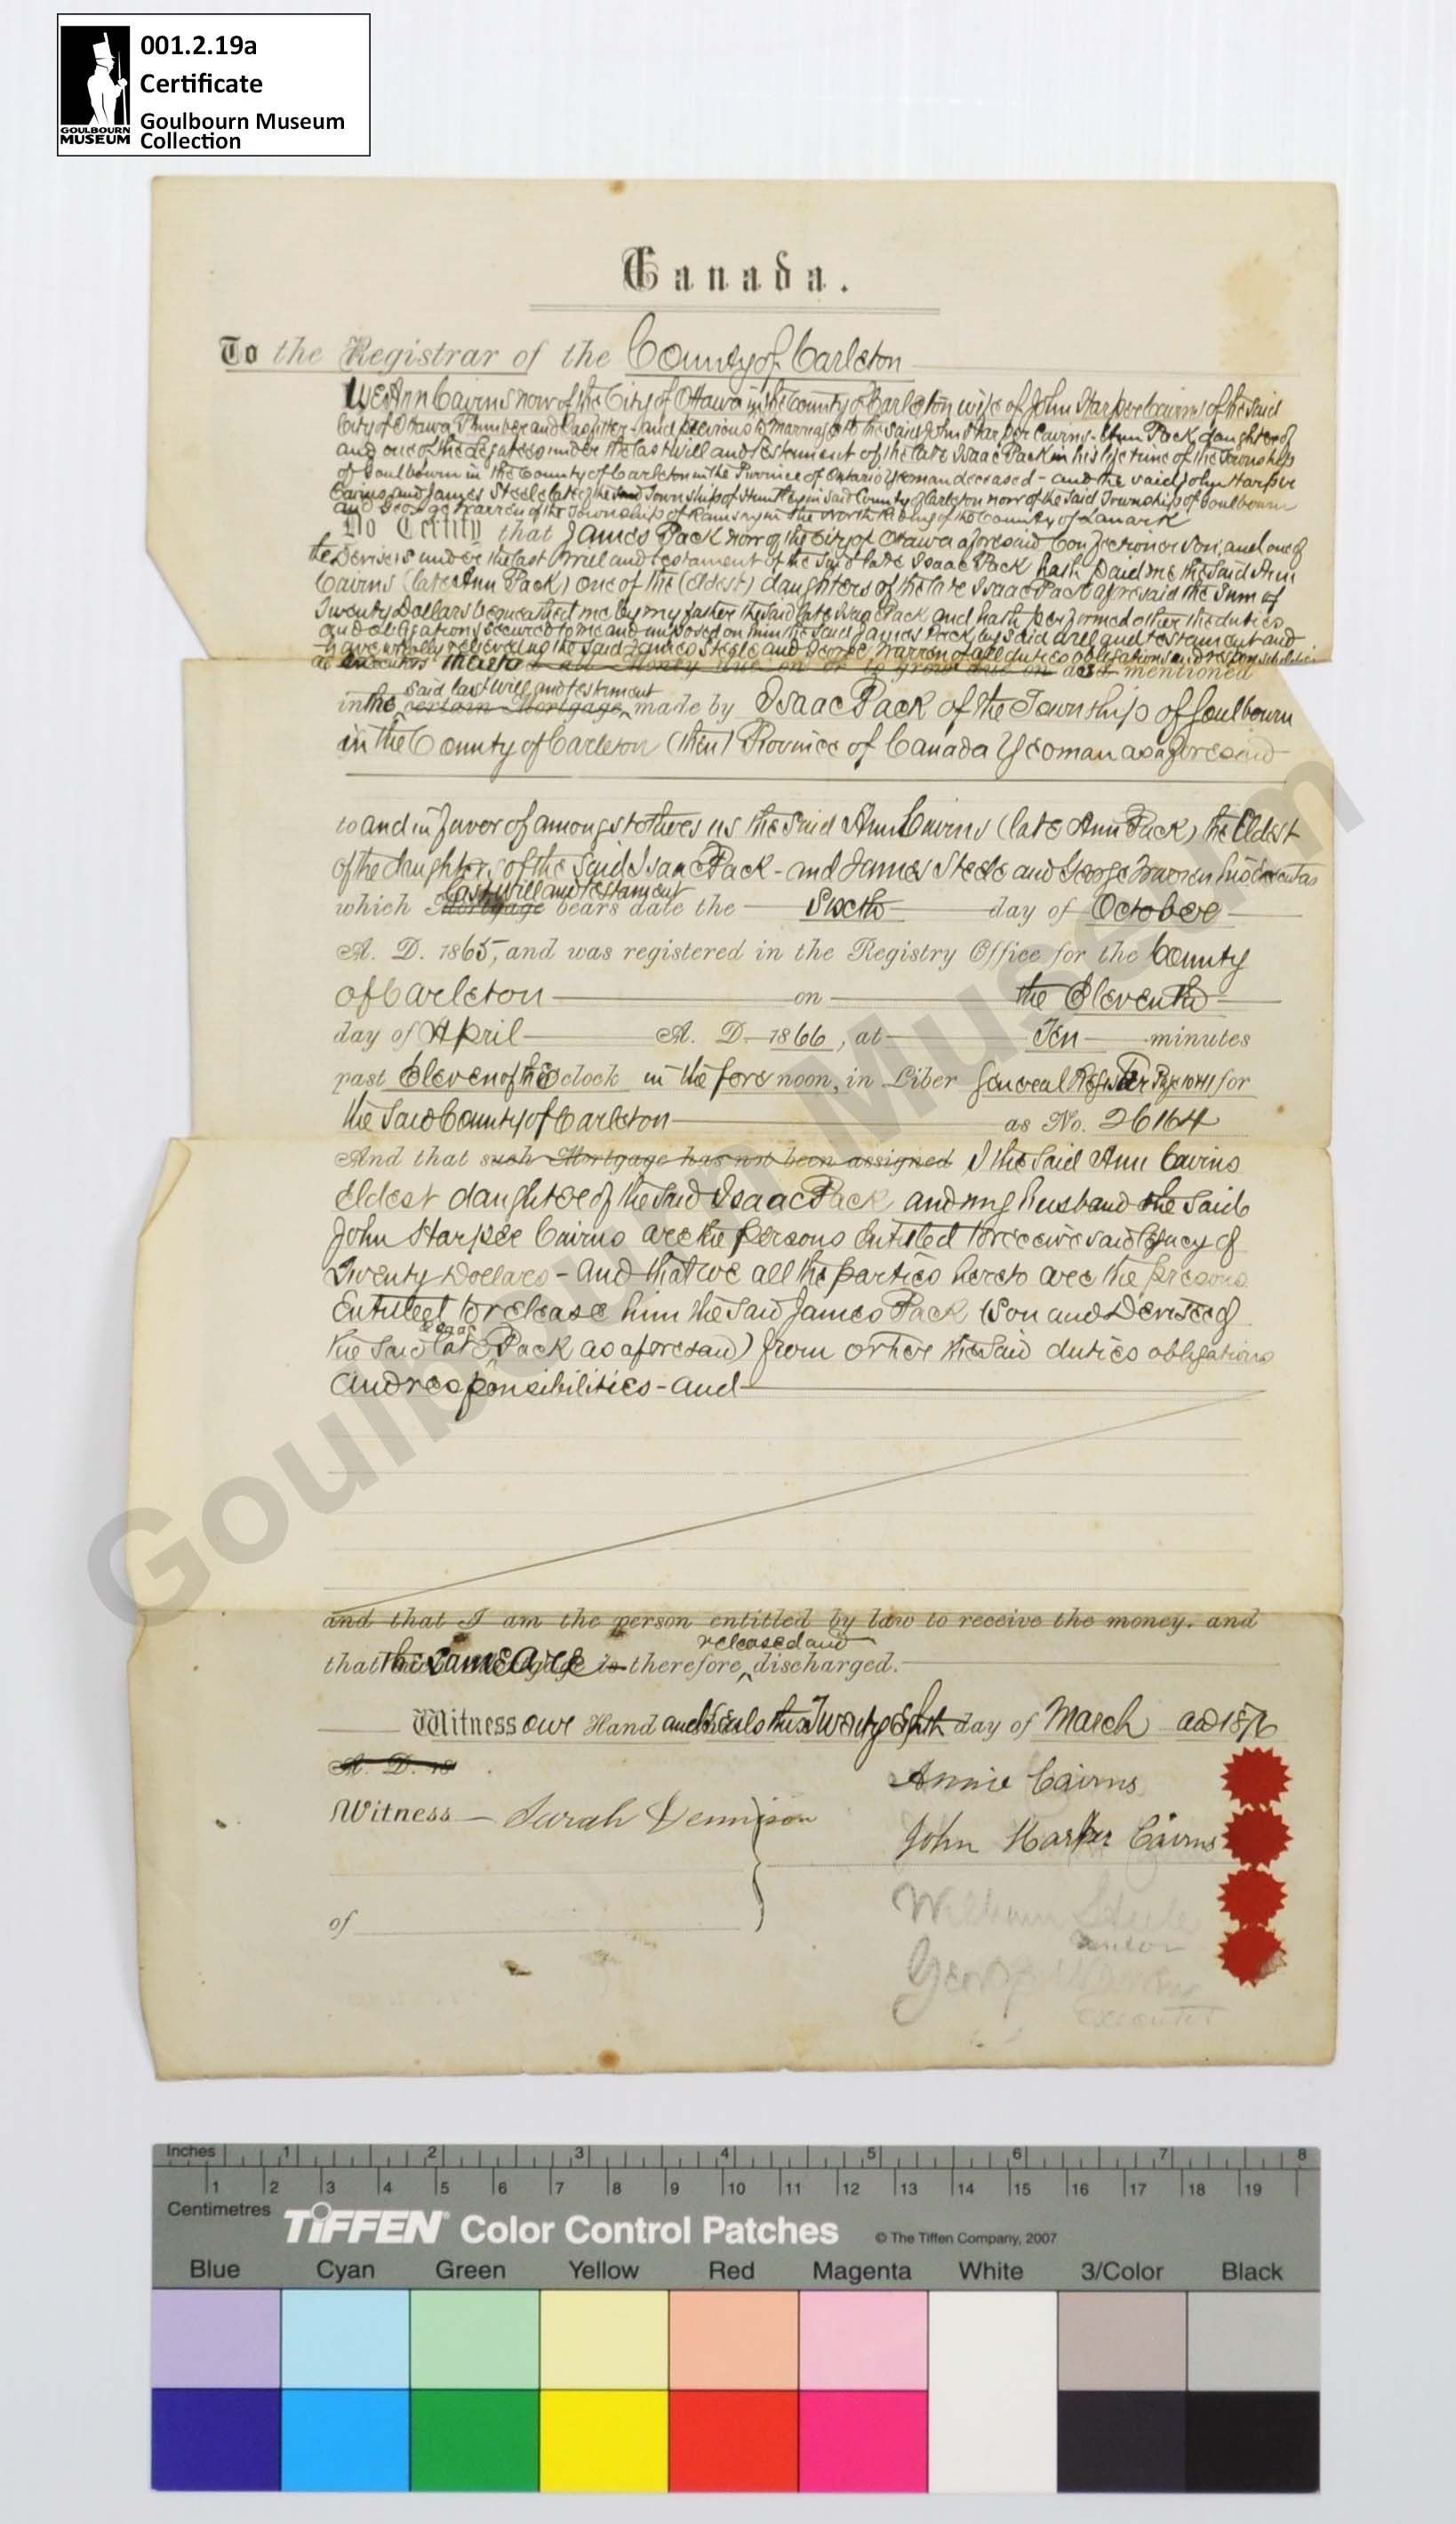 001.2.19a
Certificate
Goulbourn Museum
Collection
GOULBOURN
MUSEUM
Canada.
To the Registrar of the County of Carleton
We Ann Cairns now of the City of Ottawa in the County of Carleton wife of John Harper Cairns of the said
City of Ottawa Plumber and Gasfitter and previous to marriage with the said John Harper Cairns - Ann Pack daughter of
and one of the Legatees under the last will and testament of the late Isaac Pack in his lifetime of the Township
of Goulbourn in the County of Carleton in the Province of Ontario Yeoman deceased - and the said John Harper
Cairns and James Steele late of the said Township of Huntley in said County of Carleton now of the said Township of Goulbourn
and George Warren of the Township of Ramsay in the North Riding of the County of Lanark
Do Certify that James Pack now of the City of Ottawa aforesaid Confectioner son and one of
the Devisees under the last will and testament of the said late Isaac Pack hath paid me the said Ann
Cairns (late Ann Pack) one of the (eldest) daughters of the late Isaac Pack aforesaid the sum of
Twenty Dollars bequeathed me by my father the said late Isaac Pack and hath performed other the duties
and obligations secured to me and imposed on him the said James Pack by said will and testament and
relieving the said James Steele and George Warren of all duties obligations and responsibilities
as Executors all Money due on or to grow due on as mentioned
said last will and testiment
in the certain Mortgage made by Isaac Pack of the Township of Goulbourn
in the County of Carleton (then) Province of Canada Yeoman as aforesaid
to and in favor of amongst others us the said Ann Cairns (late Ann Pack) the Eldest
of the daughters of the said Isaac Pack - and James Steele and George Warren his Executors
last will and testament
which Mortgage bears date the Sixth day of October
A. D. 1865, and was registered in the Registry Office for the County
of Carleton on the Eleventh
day of April A. D. 1866, at Ten minutes
past Eleven of the O'clock in the fore noon, in Liber General Register Page 1041 for
the said County of Carleton as No. 26164
And that such Mortgage has not been assigned I the said Ann Cairns
Eldest daughter of the said Isaac Pack and my husband the said
John Harper Cairns are the persons entitled to receive said legacy of
Twenty Dollars - and that we all the parties hereto are the persons
Entitled to release him the said James Pack (Son and Devisee of
Isaac
the said late Pack as aforesaid) from other the said duties obligations
and responsibilities - and
and that I am the person entitled by law to receive the money. and
released and
that the same are is therefore discharged.
Witness our Hand and Seals this Twenty Eighth day of March AD 1876
A. D. 18
Annie Cairns
Witness - Sarah Dennison
John Harper Cairns
William Steele
of
George Warren
executor
Goulbourn Museum
Inches 1 2 3 4 5 6 7 8
1 2 3 4 5 6 7 8 9 10 11 12 13 14 15 16 17 18 19
Centimetres
TIFFEN Color Control Patches © The Tiffen Company, 2007
Blue Cyan Green Yellow Red Magenta White 3/Color Black